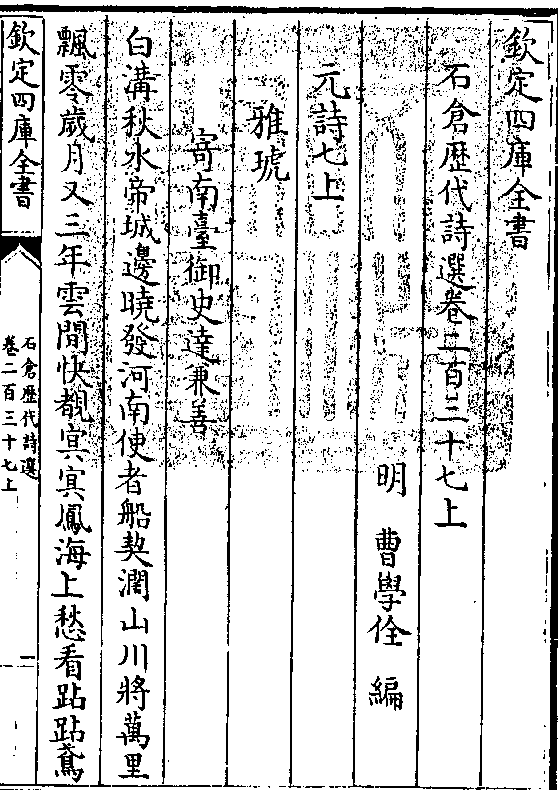 欽定四庫全書
石倉歴代詩選巻二百三十七上
明 曹學佺 編
元詩七上
雅琥
寄南臺御史達兼善
白溝秋水帝城邊曉發河南使者船契濶山川將萬里
飄零歲月又三年雲間快覩㝠㝠鳳海上愁看跕跕鳶
欽定四庫全書
石倉歴代詩選
卷二百三十七上
一